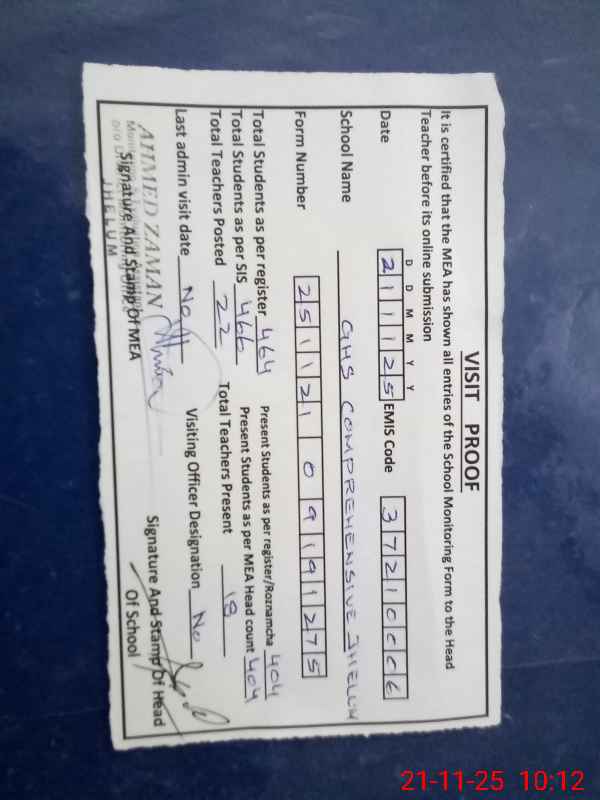 VISIT PROOF
It is certified that the MEA has shown all entries of the School Monitoring Form to the Head
Teacher before its online submission
D D M M Y Y
Date 211125 EMIS Code 37210006
School Name GHS COMPREHENSIVE JHELUM
Form Number 251121 09191275
Total Students as per register 464 Present Students as per register/Roznamcha 404
Total Students as per SIS 466 Present Students as per MEA Head count 404
Total Teachers Posted 22 Total Teachers Present 18
Last admin visit date No Visiting Officer Designation No
AHMED ZAMAN
JHELUM
Signature And Stamp Of MEA
Signature And Stamp Of Head
Of School
21-11-25 10:12